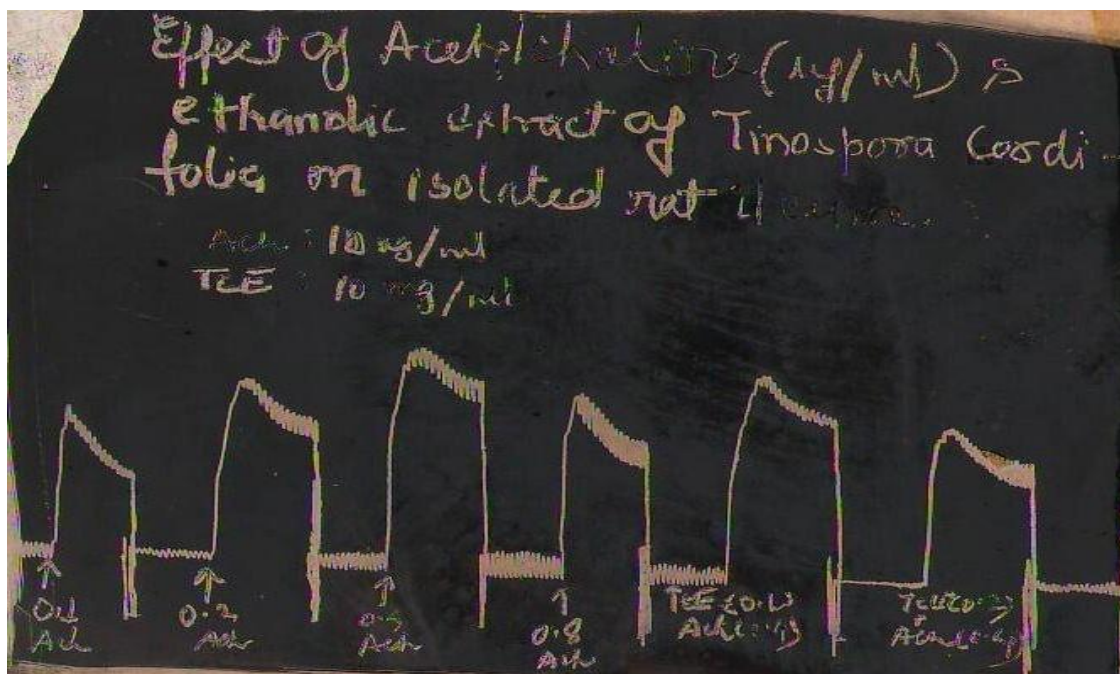 Effect of Acetylcholine (ug/ml) &
ethanolic extract of Tinospora Cordi-
folia on isolated rat ileum.
Ach : 10 ug/ml
TCE : 10 mg/ml
0.1 0.2 0.8 TCE (0.1)
Ach Ach Ach Ach Ach